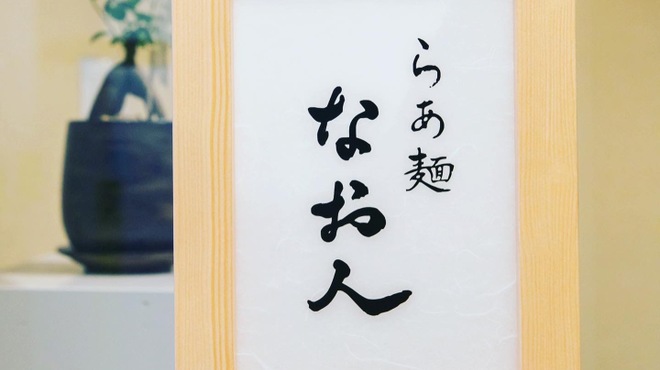 らぁ麺
なお人